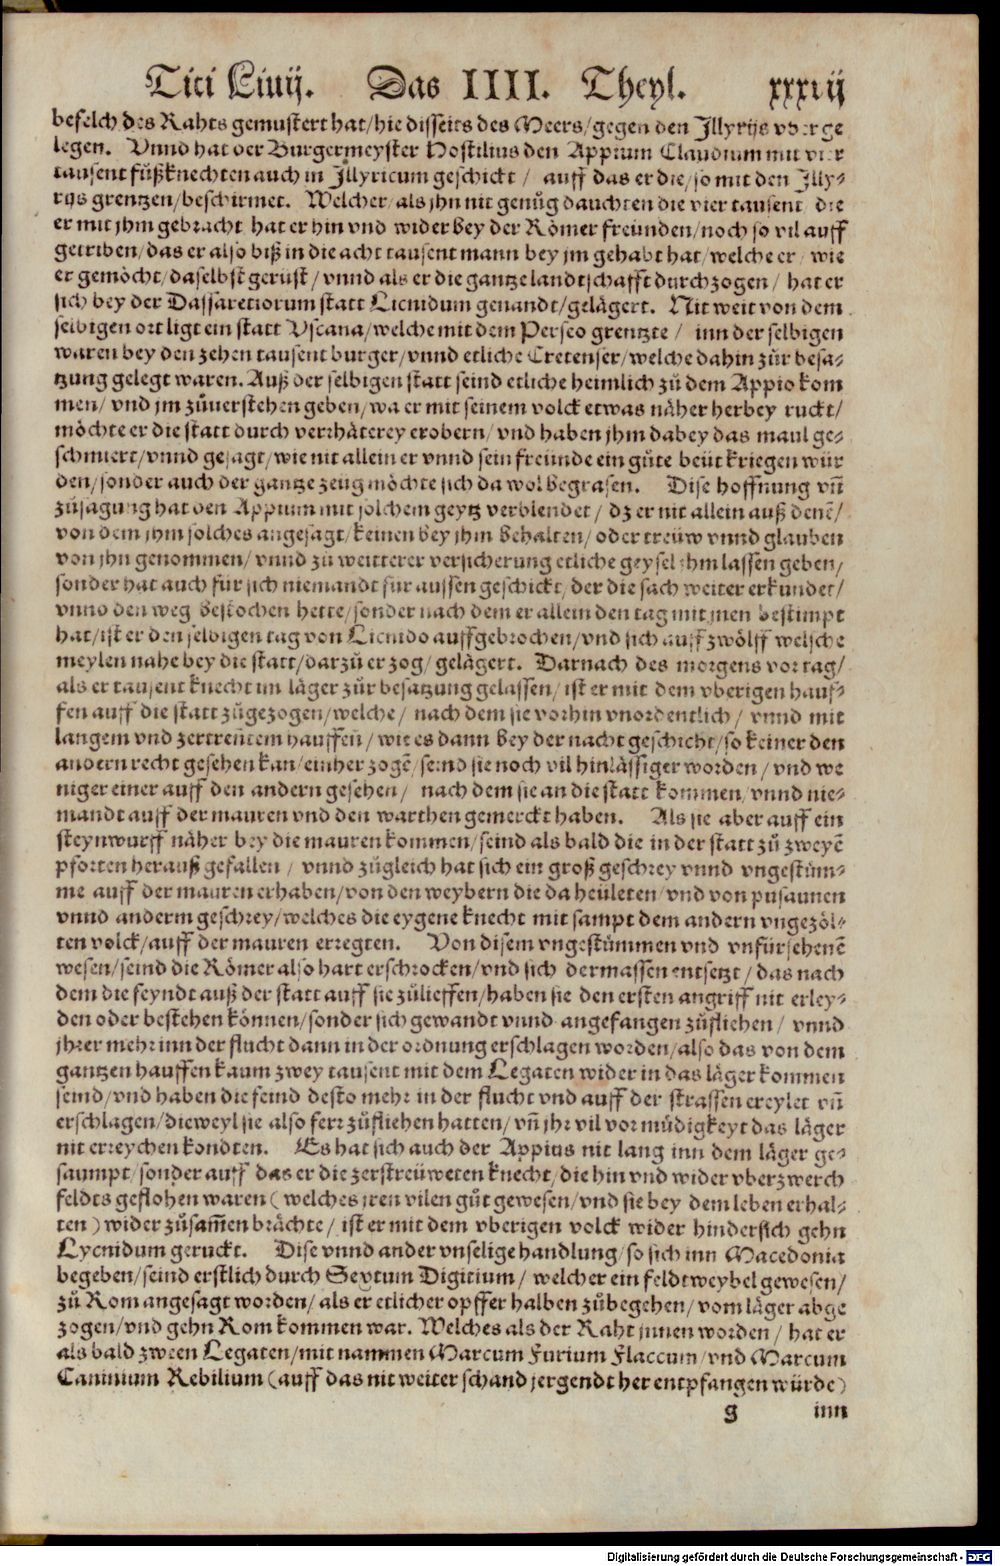 Titi Liuij. Das IIII. Theyl. xxxvij
befelch des Rahts gemustert hat/hie disseits des Meers/gegen den Jllyrijs vber ge
legen. Vnnd hat der Burgermeyster Hostilius den Appium Claudium mit vier
tausent fůßknechten auch in Jllyricum geschickt / auff das er die/so mit den Jlly-
rijs grentzen/beschirmet. Welcher/als jhn nit genůg dauchten die vier tausent die
er mit jhm gebracht hat er hin vnd wider bey der Römer freünden/noch so vil auff
getriben/das er also biß in die acht tausent mann bey jm gehabt hat/welche er/ wie
er gemöcht/daselbst gerüst/vnnd als er die gantze landtschafft durchzogen/ hat er
sich bey der Dassaretiorum statt Licnidum genandt/gelägert. Nit weit von dem
selbigen ort ligt ein statt Vscana/welche mit dem Perseo grentzte / inn der selbigen
waren bey den zehen tausent burger/vnnd etliche Cretenser/welche dahin zůr besa-
tzung gelegt waren. Auß der selbigen statt seind etliche heimlich zů dem Appio kom
men/ vnd jm zůuerstehen geben/wa er mit seinem volck etwas näher herbey ruckt/
möchte er die statt durch verrhäterey erobern/ vnd haben jhm dabey das maul ge-
schmiert/vnnd gesagt/wie nit allein er vnnd sein freünde ein gůte beüt kriegen wür
den/sonder auch der gantze zeüg möchte sich da wol begrasen. Dise hoffnung vñ
zůsagung hat den Appium mit solchem geytz verblendet / dz er nit allein auß denē/
von dem jhm solches angesagt/keinen bey jhm behalten/oder treüw vnnd glauben
von jhn genommen/ vnnd zů weitterer versicherung etliche geysel jhm lassen geben/
sonder hat auch für sich niemandt für aussen geschickt/der die sach weiter erkündet/
vnnd den weg bestochen hette/sonder nach dem er allein den tag mit jnen bestimpt
hat/ist er den selbigen tag von Licnido auffgebrochen/vnd sich auff zwölff welsche
meylen nahe bey die statt/darzů er zog/ gelägert. Darnach des morgens vor tag/
als er tausent knecht im läger zůr besatzung gelassen/ ist er mit dem vberigen hauf-
fen auff die statt zůgezogen/welche/ nach dem sie vorhin vnordentlich / vnnd mit
langem vnd zertreñtem hauffen/wie es dann bey der nacht geschicht/so keiner den
andern recht gesehen kan/einher zogē/seind sie noch vil hinlässiger worden/vnd we
niger einer auff den andern gesehen/ nach dem sie an die statt kommen/vnnd nie-
mandt auff der mauren vnd den warthen gemerckt haben. Als sie aber auff ein
steynwurff näher bey die mauren kommen/seind als bald die in der statt zů zweyē
pforten herauß gefallen / vnnd zůgleich hat sich ein groß geschrey vnnd vngestüm-
me auff der mauren erhaben/von den weybern die da heületen/vnd von pusaunen
vnnd anderm geschrey/welches die eygene knecht mit sampt dem andern vngezöl-
ten volck/auff der mauren erregten. Von disem vngestümmen vnd vnfürsehenē
wesen/seind die Römer also hart erschrocken/vnd sich dermassen entsetzt / das nach
dem die feyndt auß der statt auff sie zůlieffen/haben sie den ersten angriff nit erley-
den oder bestehen können/sonder sich gewandt vnnd angefangen zůfliehen/ vnnd
jhrer mehr inn der flucht dann in der ordnung erschlagen worden/also das von dem
gantzen hauffen kaum zwey tausent mit dem Legaten wider in das läger kommen
seind/vnd haben die feind desto mehr in der flucht vnd auff der strassen ereylet vñ
erschlagen/dieweyl sie also ferr zůfliehen hatten/vñ jhr vil vor müdigkeyt das läger
nit erreychen kondten. Es hat sich auch der Appius nit lang inn dem läger ge-
saumpt/sonder auff das er die zerstreüweten knecht/die hin vnd wider vberzwerch
feldts geflohen waren (welches jren vilen gůt gewesen/vnd sie bey dem leben erhal-
ten) wider zůsam̄en brächte/ ist er mit dem vberigen volck wider hindersich gehn
Lycnidum geruckt. Dise vnnd ander vnselige handlung/so sich inn Macedonia
begeben/seind erstlich durch Sextum Digitium/ welcher ein feldtweybel gewesen/
zů Rom angesagt worden/als er etlicher opffer halben zůbegehen/vom läger abge
zogen/vnd gehn Rom kommen war. Welches als der Raht jnnen worden/ hat er
als bald zween Legaten/mit nammen Marcum Furium Flaccum/vnd Marcum
Caninium Rebilium (auff das nit weiter schand jergendt her entpfangen würde)
g inn
Digitalisierung gefördert durch die Deutsche Forschungsgemeinschaft - DFG